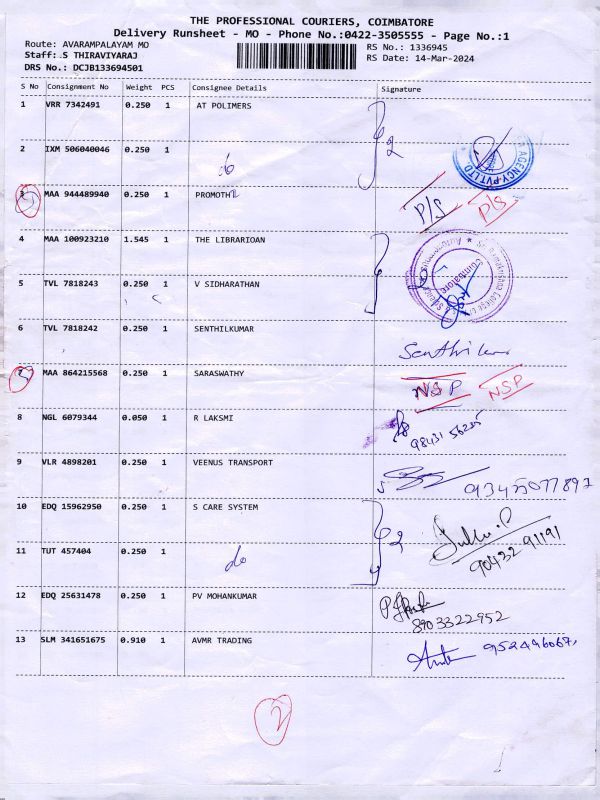 THE PROFESSIONAL COURIERS, COIMBATORE
Delivery Runsheet - MO - Phone No.:0422-3505555 - Page No.:1
Route: AVARAMPALAYAM MO
RS No.: 1336945
Staff:.S THIRAVIYARAJ
RS Date: 14-Mar-2024
DRS No.: DCJB133694501
S No Consignment No Weight PCS Consignee Details Signature
1 VRR 7342491 0.250 1 AT POLIMERS
2
2 IXM 506040046 0.250 1
do
AGENCY PVT LTD
3 MAA 944489940 0.250 1 PROMOTH
P/S P/S
4 MAA 100923210 1.545 1 THE LIBRARIOAN
Coimbatore
5 TVL 7818243 0.250 1 V SIDHARATHAN
6 TVL 7818242 0.250 1 SENTHILKUMAR
7 MAA 864215568 0.250 1 SARASWATHY
NSP NSP
8 NGL 6079344 0.050 1 R LAKSMI
98431 56235
9 VLR 4898201 0.250 1 VEENUS TRANSPORT
10 EDQ 15962950 0.250 1 S CARE SYSTEM
2
90432 91191
11 TUT 457404 0.250 1
do
12 EDQ 25631478 0.250 1 PV MOHANKUMAR
8903322952
13 SLM 341651675 0.910 1 AVMR TRADING
2